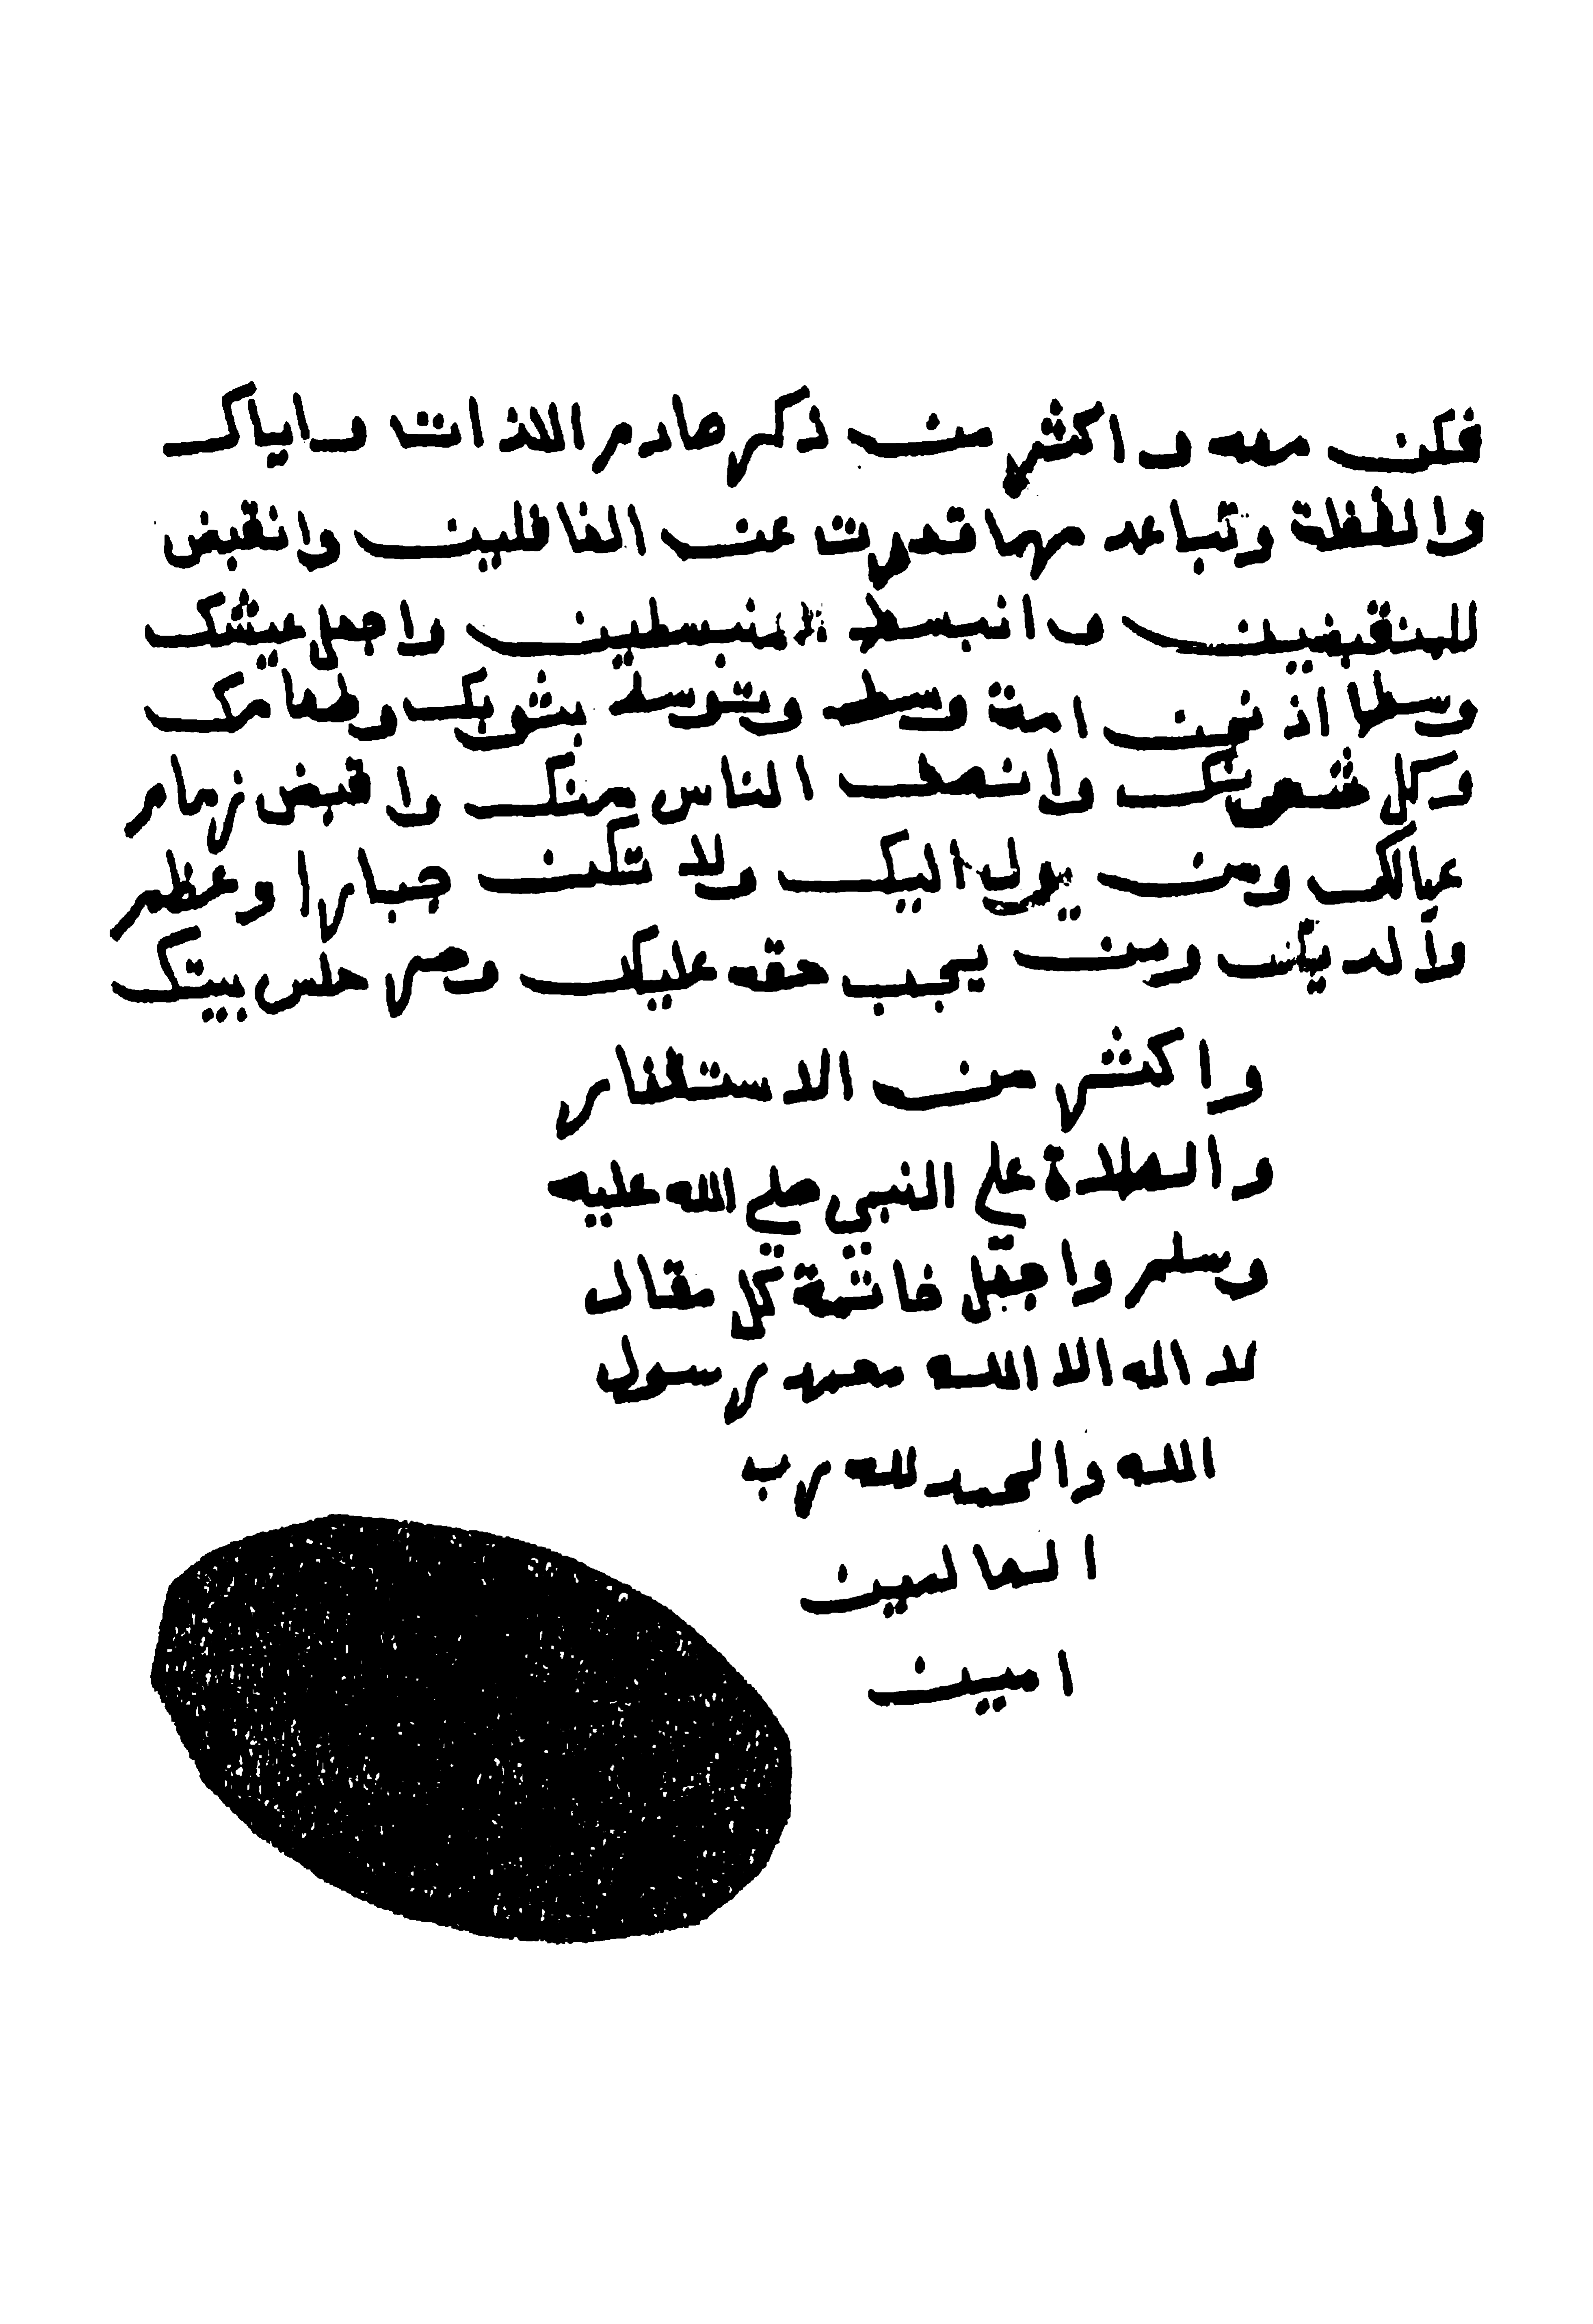 فكن معه واكثر من ذكر هادم اللذات واياك
والغفلة وتباعد مهما قدرت عن الغافلين وانقبض
للمنقبضين وانبسط للمنبسطين واجعل مشك
وسطا اذ نحن امة وسط وتوسط بثوبك وطعامك
وكل شهوتك وانصف الناس منك واقبض زمام
عيالك ومن يول اليك ولا تكن جبارا وعظم
والديك ومن يجب حقه عليك وصر حلس بيتك
واكثر من الاستغفار
والصلاة على النبي صلى الله عليه
وسلم واجعل خاتمة كل مقال
لا اله الا الله محمد رسول
الله والحمد لله رب
العالمين
امين